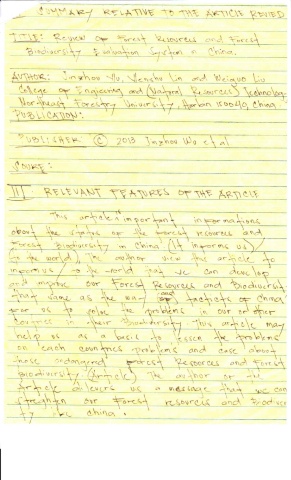 SUMMARY RELATIVE TO THE ARTICLE REVIEW
TITLE: Review of Forest Resources and Forest
Biodiversity Evaluation System in China
AUTHOR: Jinzhou Wu, Wenshu Lin and Weiguo Liu
College of Engineering and (Natural Resources) Technology
Northeast Forestry University, Harbin 150040, China
PUBLICATION:
PUBLISHER © 2013 Jinzhou Wu et al
SOURCE:
III RELEVANT FEATURES OF THE ARTICLE
This article important informations
about the status of the forest resources and
Forest Biodiversity in China (It informs us)
(to the world) The author view this article to
inform us to the world that we can develop
and improve our Forest Resources and Biodiversity
that same as the way and of China
for us to solve the problems in our or other
countries in their Biodiversity This article may
help us as a basis to lessen the problems
of each countries problems and care about
those Forest Resources and Forest
Biodiversity (Article) The author of the
article us a message that we can
our Forest resources and
China.